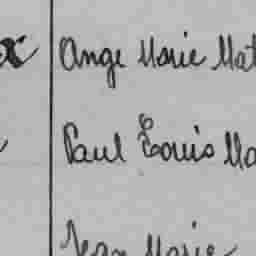 Ange Marie Mat
Paul Louis Ma
Jean Marie